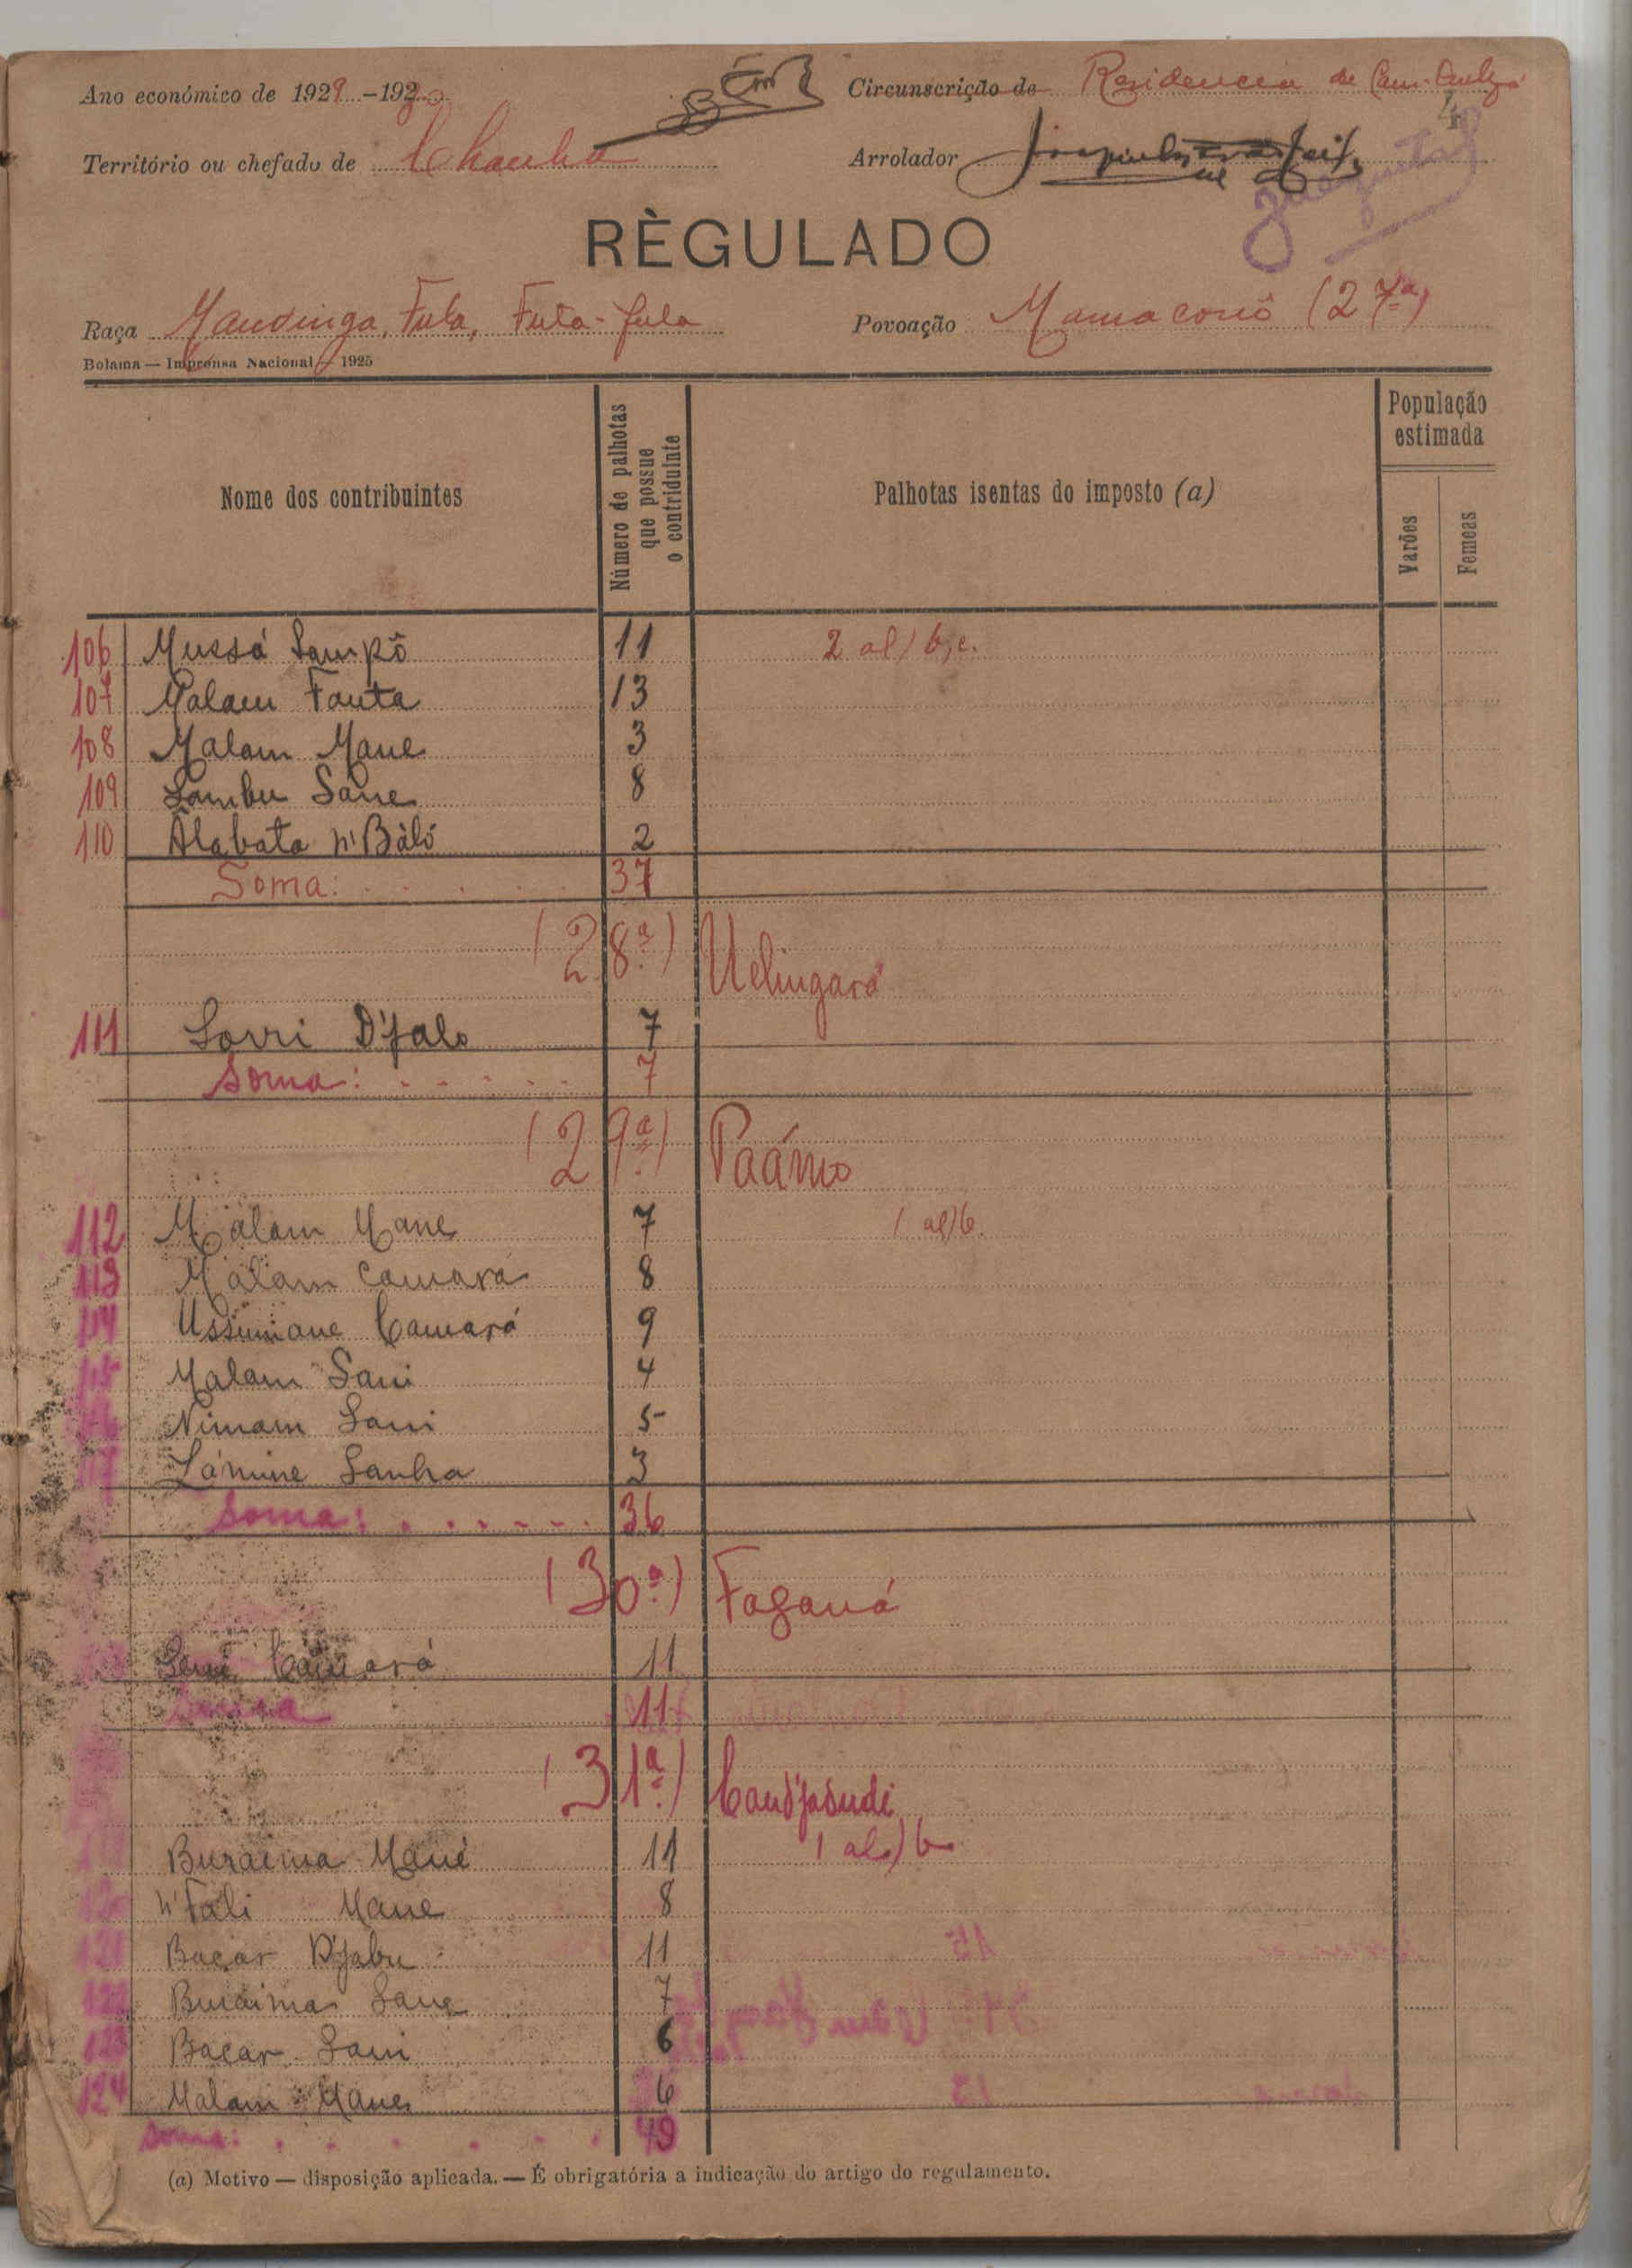 Ano económico de 1929-1930
Circunscrição de Residencia de
4
Território ou chefado de Chanha
Arrolador
RÈGULADO
Raça Mandinga, Fula, Futa-fula
Povoação Mamaconô (27ª)
Bolama — Imprensa Nacional — 1925
Nome dos contribuintes
Número de palhotas que possue o contriduinte
Palhotas isentas do imposto (a)
População estimada
Varões
Femeas
106 Mussá Sampô 11 2 al) b, c.
107 Malam Fanta 13
108 Malam Mane 3
109 Sambu Sane 8
110 Alabata n'Báló 2
Soma: 37
(28ª) Uelingará
111 Sorri D'jalo 7
Soma: 7
(29ª) Paámo
112 Malam Mane 7 1 al) b.
113 Malam Camará 8
114 Ussumane Camará 9
115 Malam Sani 4
116 Nimam Sani 5
117 Lámine Sanha 3
Soma: 36
(30ª) Faganá
Camará 11
Soma 11
(31ª) Cand'jasudi
Buraima Mané 11 1 al) b
120 n'Fali Mane 8
121 Baçar D'jabu 11
122 Buraima Sane 7
123 Baçar Sani 6
124 Malam Mane 6
Soma: 49
(a) Motivo — disposição aplicada. — É obrigatória a indicação do artigo do regulamento.